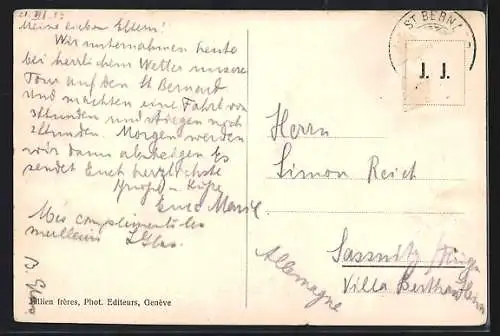 Meine lieben Eltern!
Wir unternahmen heute
bei herrlichem Wetter unsere
Tour auf den St Bernard
und machten eine Fahrt von
3 Stunden und stiegen noch
2 Stunden. Morgen werden
wir dann absteigen Es
sendet Euch herzlichste
Grüße - Küße
Eure
Mes compliments les
meilleurs
Jullien frères, Phot. Editeurs, Genève
ST BERN
J. J.
Herrn
Simon Reich
Sassnitz / Rügen
Villa Bertha
Allemagne